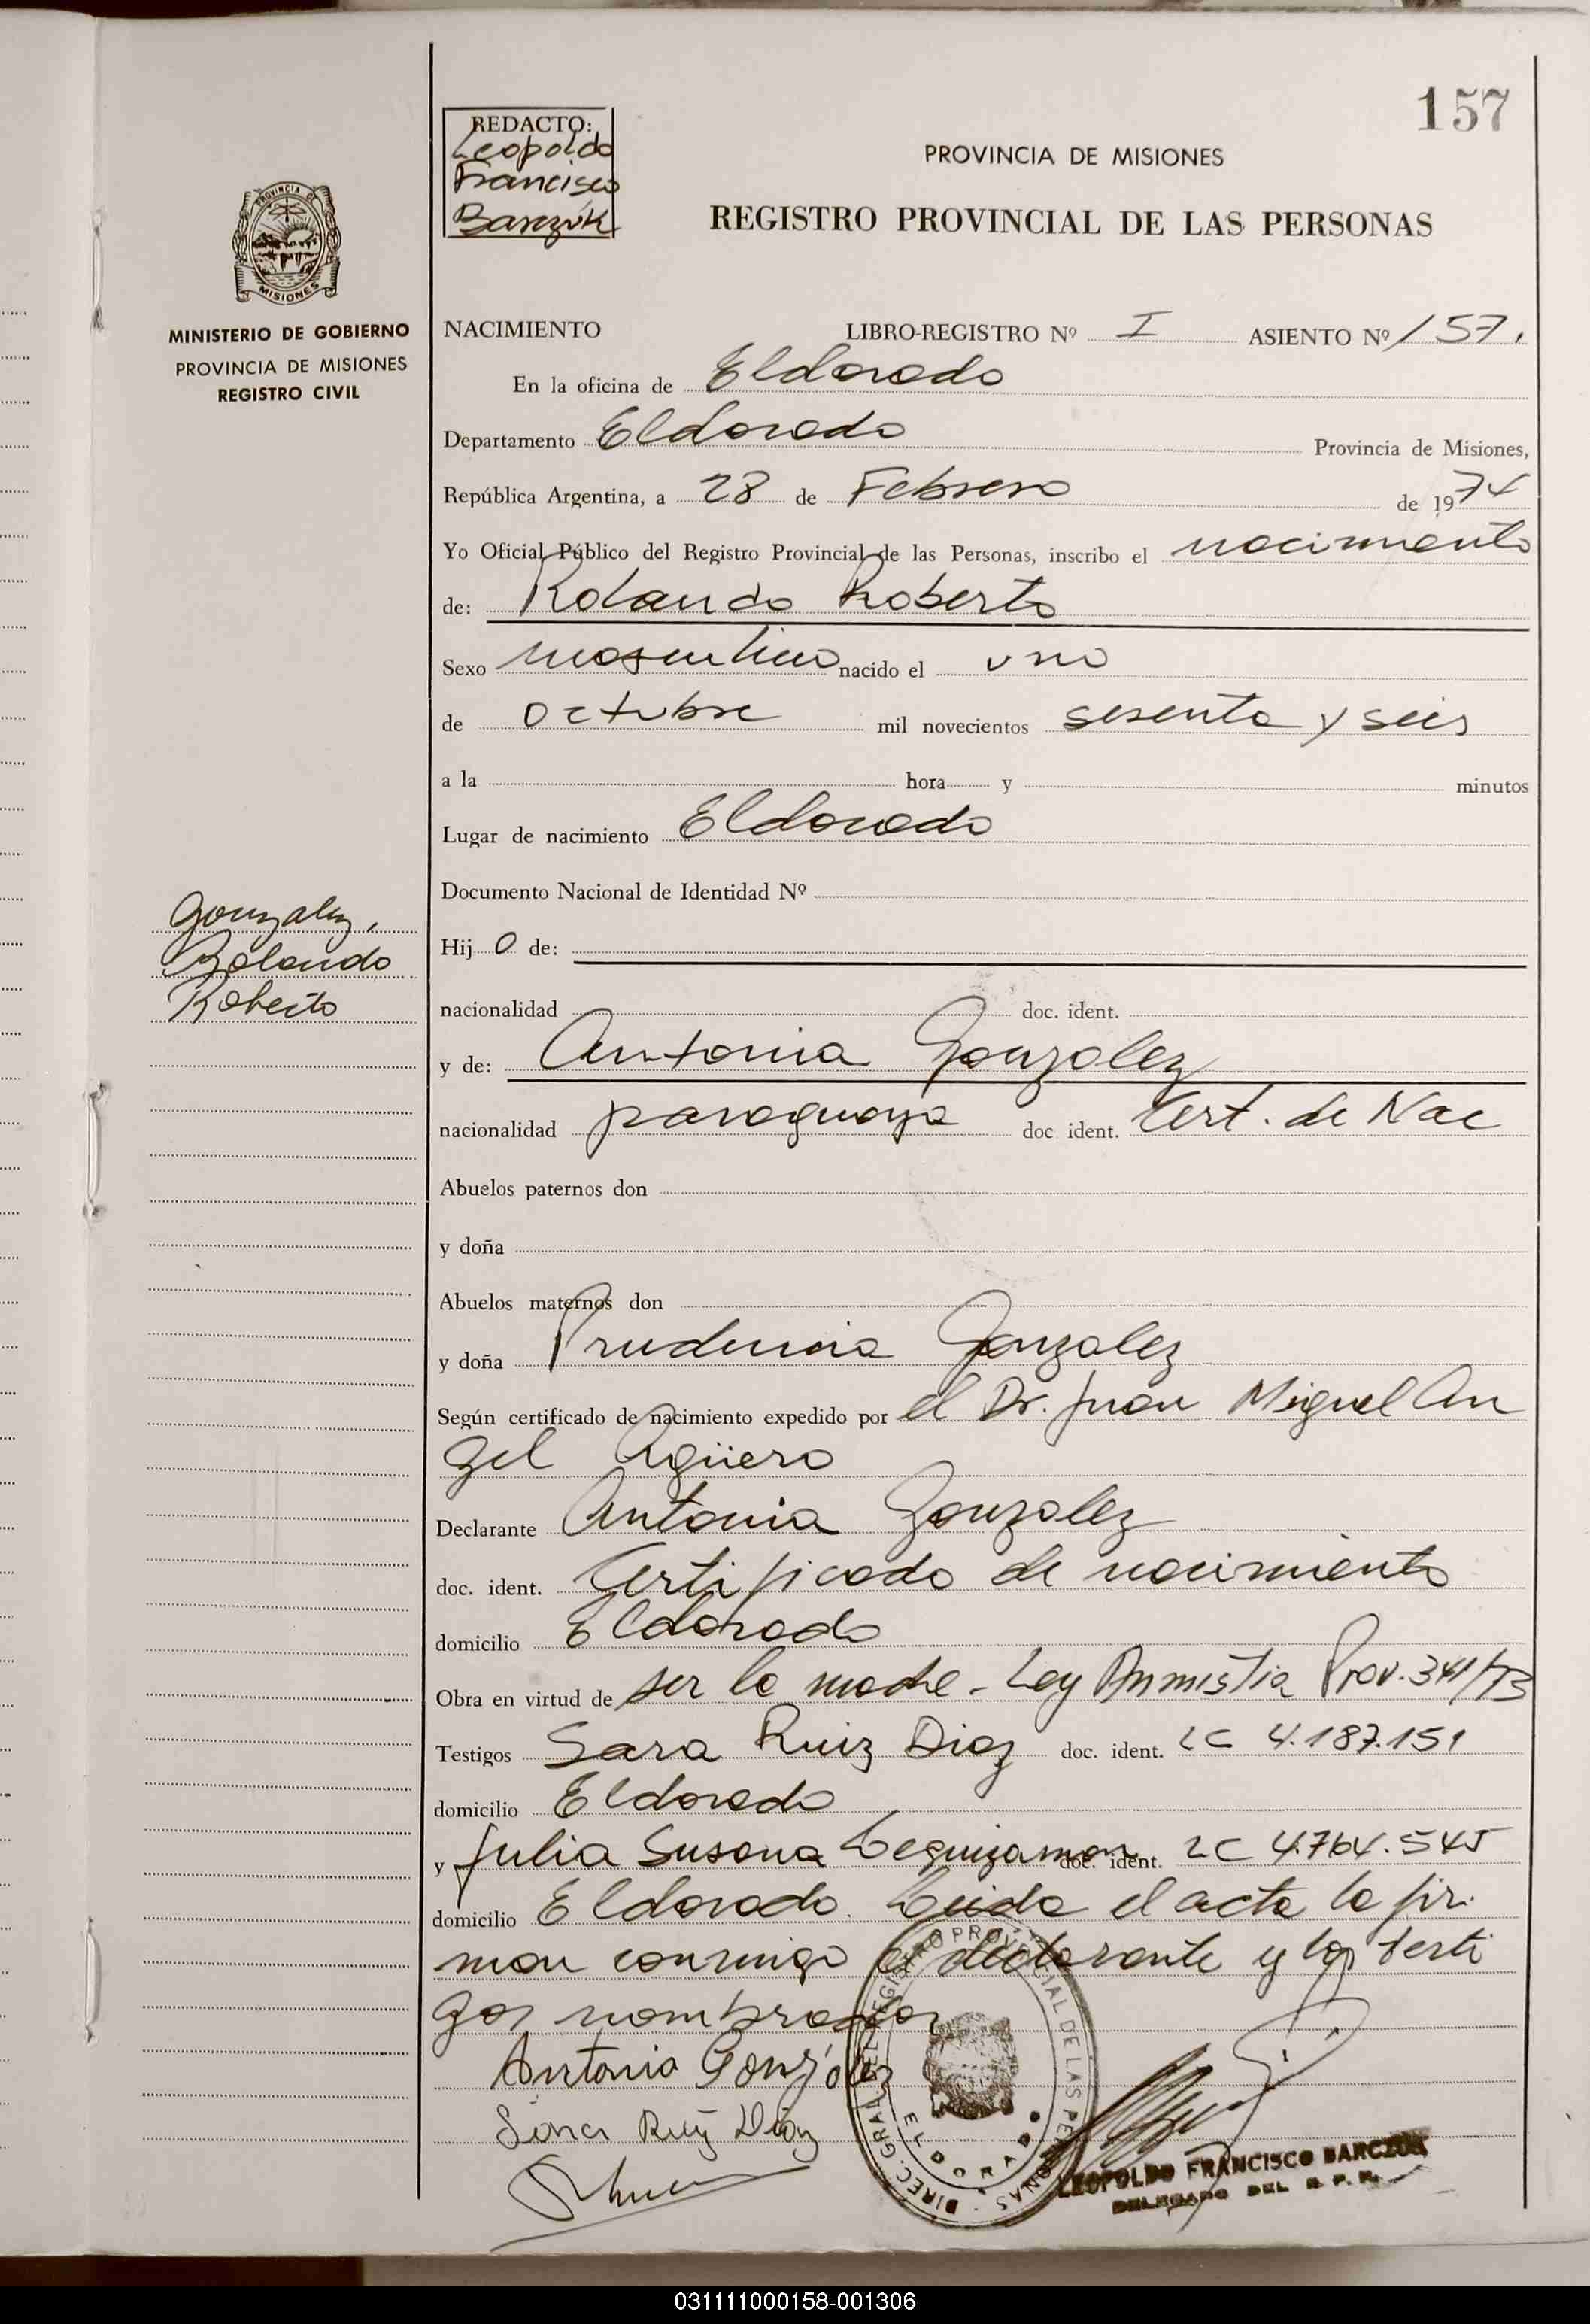 157
REDACTO:
Leopoldo
Francisco
Barczuk
PROVINCIA DE MISIONES
REGISTRO PROVINCIAL DE LAS PERSONAS
PROVINCIA DE
MISIONES
MINISTERIO DE GOBIERNO
PROVINCIA DE MISIONES
REGISTRO CIVIL
NACIMIENTO LIBRO-REGISTRO Nº I ASIENTO Nº 157.
En la oficina de Eldorado
Departamento Eldorado Provincia de Misiones,
República Argentina, a 28 de Febrero de 1974
Yo Oficial Público del Registro Provincial de las Personas, inscribo el nacimiento
de: Rolando Roberto
Sexo masculino nacido el uno
de octubre mil novecientos sesenta y seis
a la hora y minutos
Lugar de nacimiento Eldorado
Documento Nacional de Identidad Nº
Gonzalez,
Rolando
Roberto
Hij o de:
nacionalidad doc. ident.
y de: Antonia Gonzalez
nacionalidad paraguaya doc ident. Cert. de Nac
Abuelos paternos don
y doña
Abuelos maternos don
y doña Prudencia Gonzalez
Según certificado de nacimiento expedido por el Dr. Juan Miguel An
gel Agüero
Declarante Antonia Gonzalez
doc. ident. Certificado de nacimiento
domicilio Eldorado
Obra en virtud de ser la madre - Ley Amnistia Prov. 341/73
Testigos Sara Ruiz Diaz doc. ident. LC 4.187.151
domicilio Eldorado
y Julia Susana Leguizamon doc. ident. LC 4.764.545
domicilio Eldorado. Leida el acta la fir
man conmigo el declarante y los testi
gos nombrados
Antonia Gonzalez
Sara Ruiz Diaz
DIREC. GRAL. DEL REGISTRO PROVINCIAL DE LAS PERSONAS
ELDORADO
LEOPOLDO FRANCISCO BARCZUK
DELEGADO DEL R. P. P.
031111000158-001306